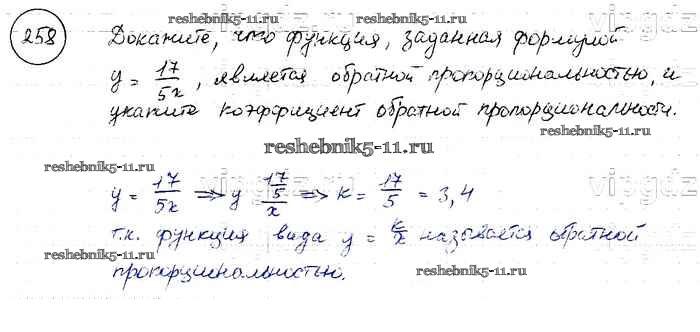 reshebnik5-11.ru
258 Докажите, что функция, заданная формулой
y = 17/5x, является обратной пропорциональностью, и
укажите коэффициент обратной пропорциональности.
reshebnik5-11.ru
reshebnik5-11.ru
reshebnik5-11.ru
vipgdz
reshebnik5-11.ru
y = 17/5x ⇒ y (17/5)/x ⇒ k = 17/5 = 3,4
т.к. функция вида y = k/x называется обратной
пропорциональностью.
reshebnik5-11.ru